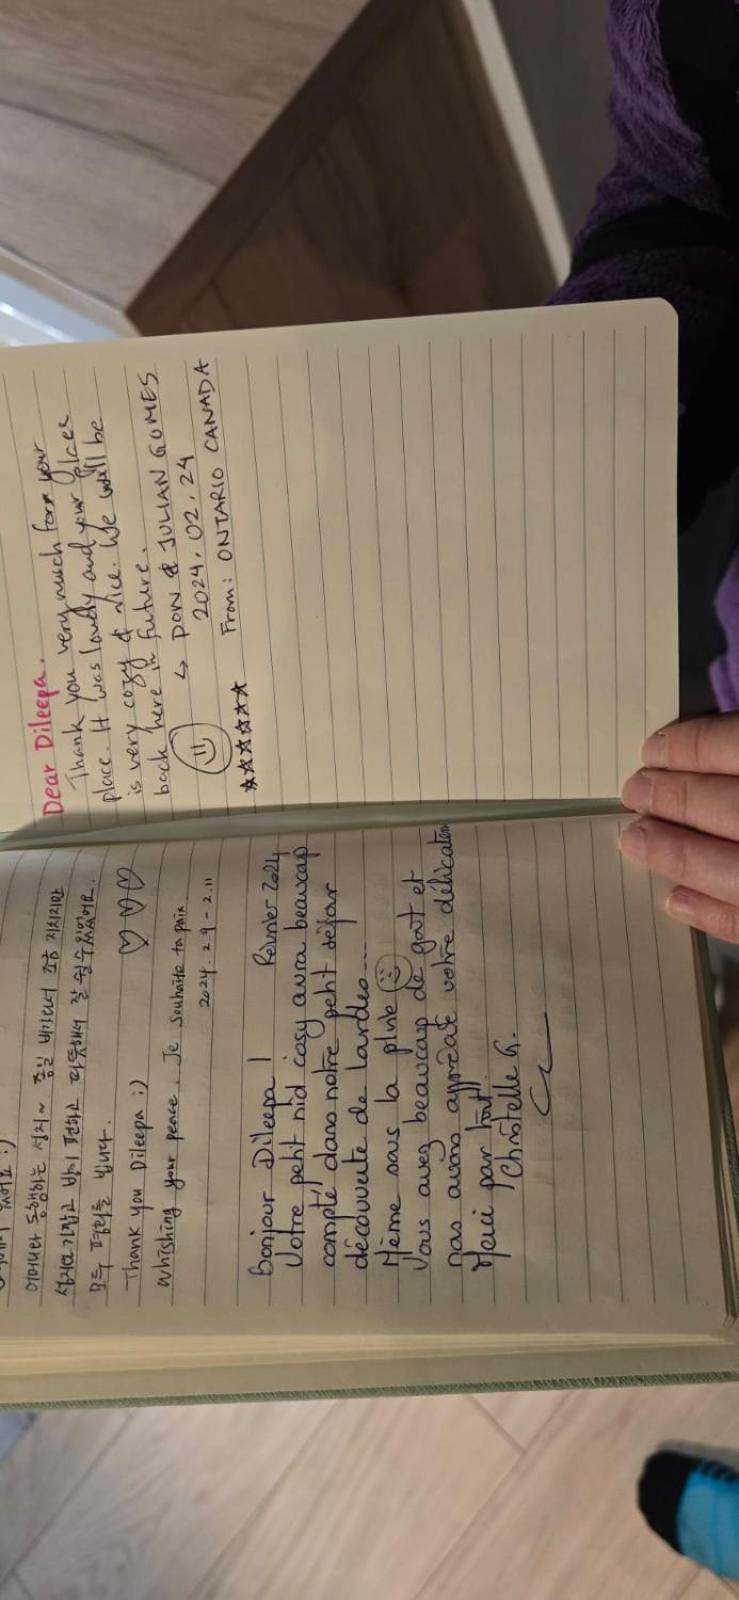 어머니랑 동행하는 성지~ 종일 밖에서 조금 지치지만
모두 평화를 빕니다.
Thank you Dileepa :)
♡ ♡ ♡
Whishing your peace. Je souhaite ta paix
2024. 2.9 - 2.11
Bonjour Dileepa ! Février 2024
Votre petit nid cosy aura beaucoup
compté dans notre petit séjour
découverte de Lourdes...
Même sous la pluie ☺
Vous avez beaucoup de goût et
nous avons apprécié votre délicatesse
Merci pour tout.
Christelle G.
Dear Dileepa.
Thank you very much for your
place. It was lovely and your place
is very cozy & nice. We will be
back here in future.
☺ ↳ DON & JULIAN GOMES
2024. 02. 24
★★★★★★ From: ONTARIO CANADA